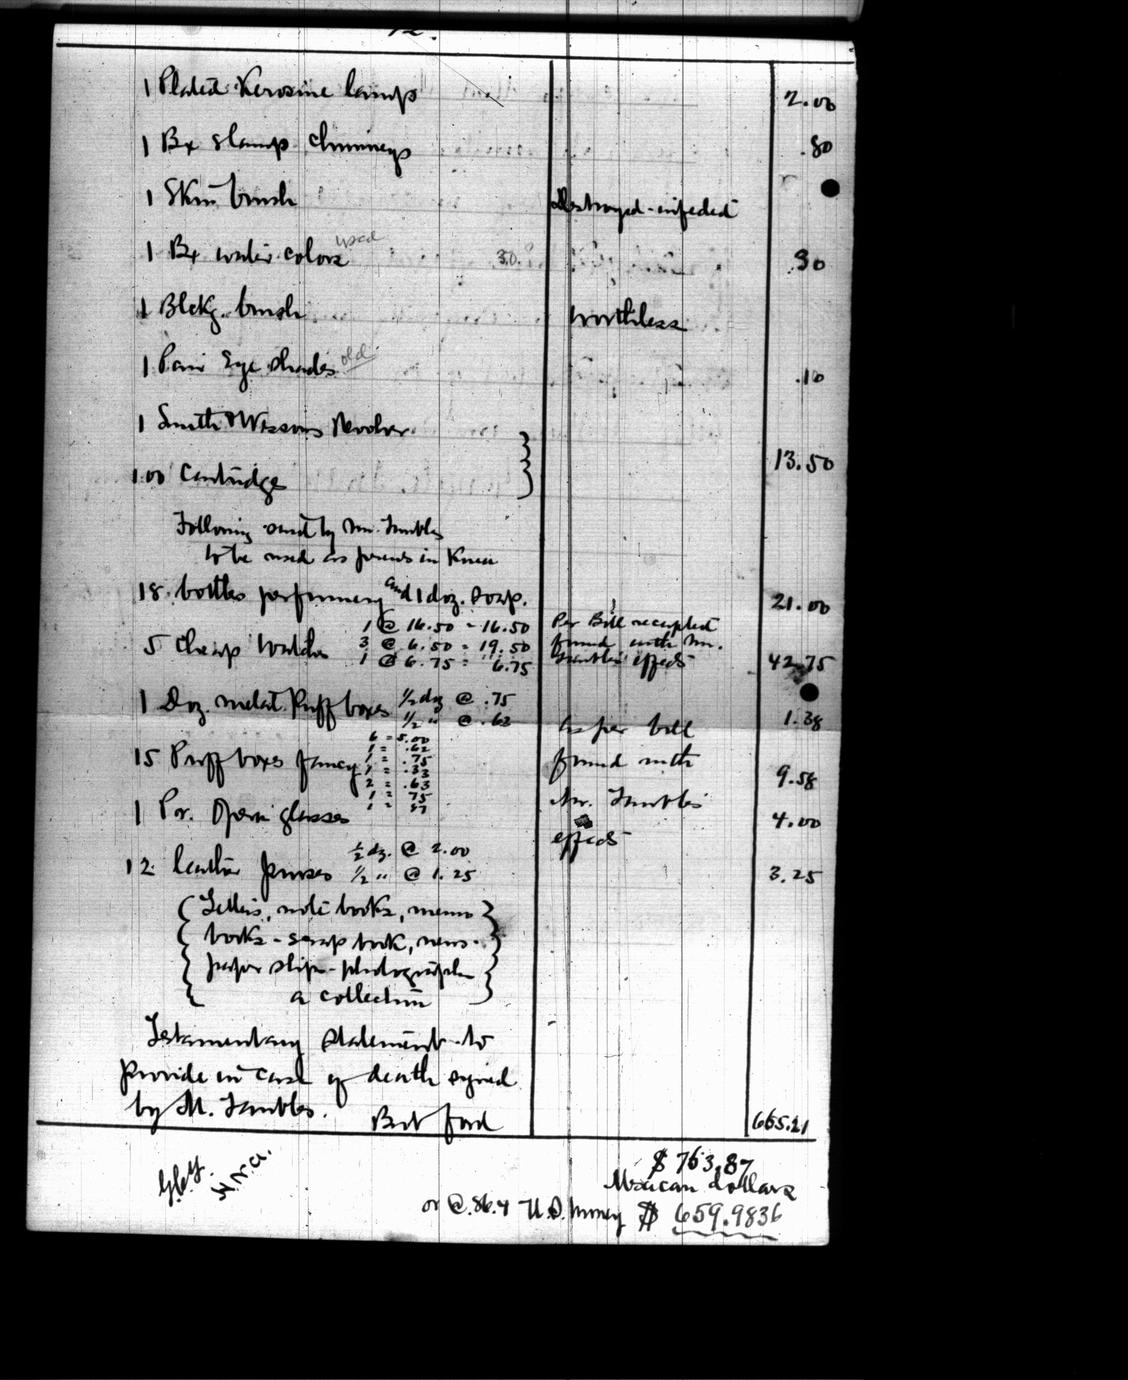 12.
1 Plated Kerosine lamp 2.00
1 Bx lamp chimneys .80
1 Skin brush Destroyed-infected
1 Bx water colors used 30. .30
1 Blckg. brush Worthless
1 Pair Eye shades old .10
1 Smith & Wessons Revolver
100 Cartridge 13.50
Following sent by Mr.
to be used as in
18 bottles perfumery and 1 doz. soap. 21.00
5 Cheap Watches 1 @ 16.50 = 16.50 Per Bill receipted
3 @ 6.50 = 19.50 found with Mr.
1 @ 6.75 = 6.75 effects 42.75
1 Doz. metal Puff boxes ½ dz @ .75
½ " @ .62 as per bill 1.38
15 Puff boxes fancy 6 = 5.00 found with 9.58
1 = .62
1 = .75
1 = .33
2 = .63
1 = 75
1 =
1 Pr. Opera glasses Mr. 4.00
effects
12 leather purses ½ dz. @ 2.00
½ " @ 1.25 3.25
Letters, note books, memo
books - scrap book, news-
paper slips - photographs
a collection
Testamentary statement to
provide in case of death signed
by M.
Bert Ford 665.21
$ 763.87
Mexican dollars
or @ .86.4 U.S. money $ 659.9836